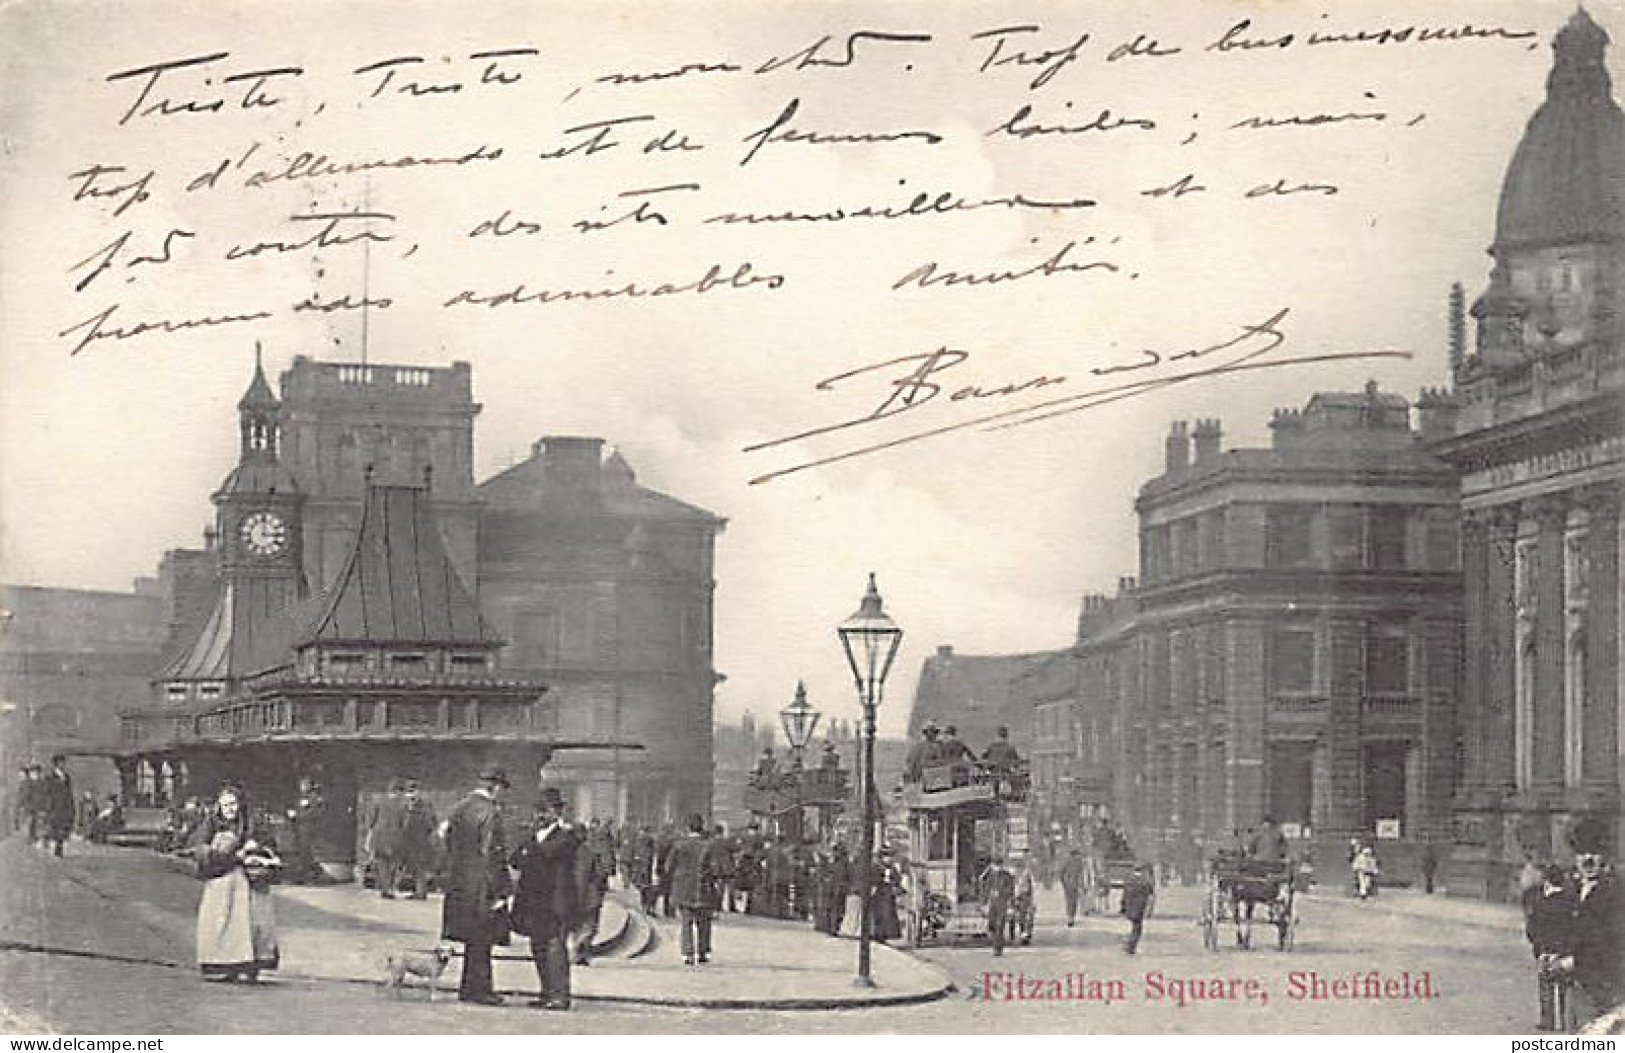 Triste, Triste, mon cher. Trop de businessmen,
trop d'allemands et de femmes laides; mais,
par contre, des sites merveilleux et des
promenades admirables Amitiés.
Fitzallan Square, Sheffield.
delcampe.net
postcardman